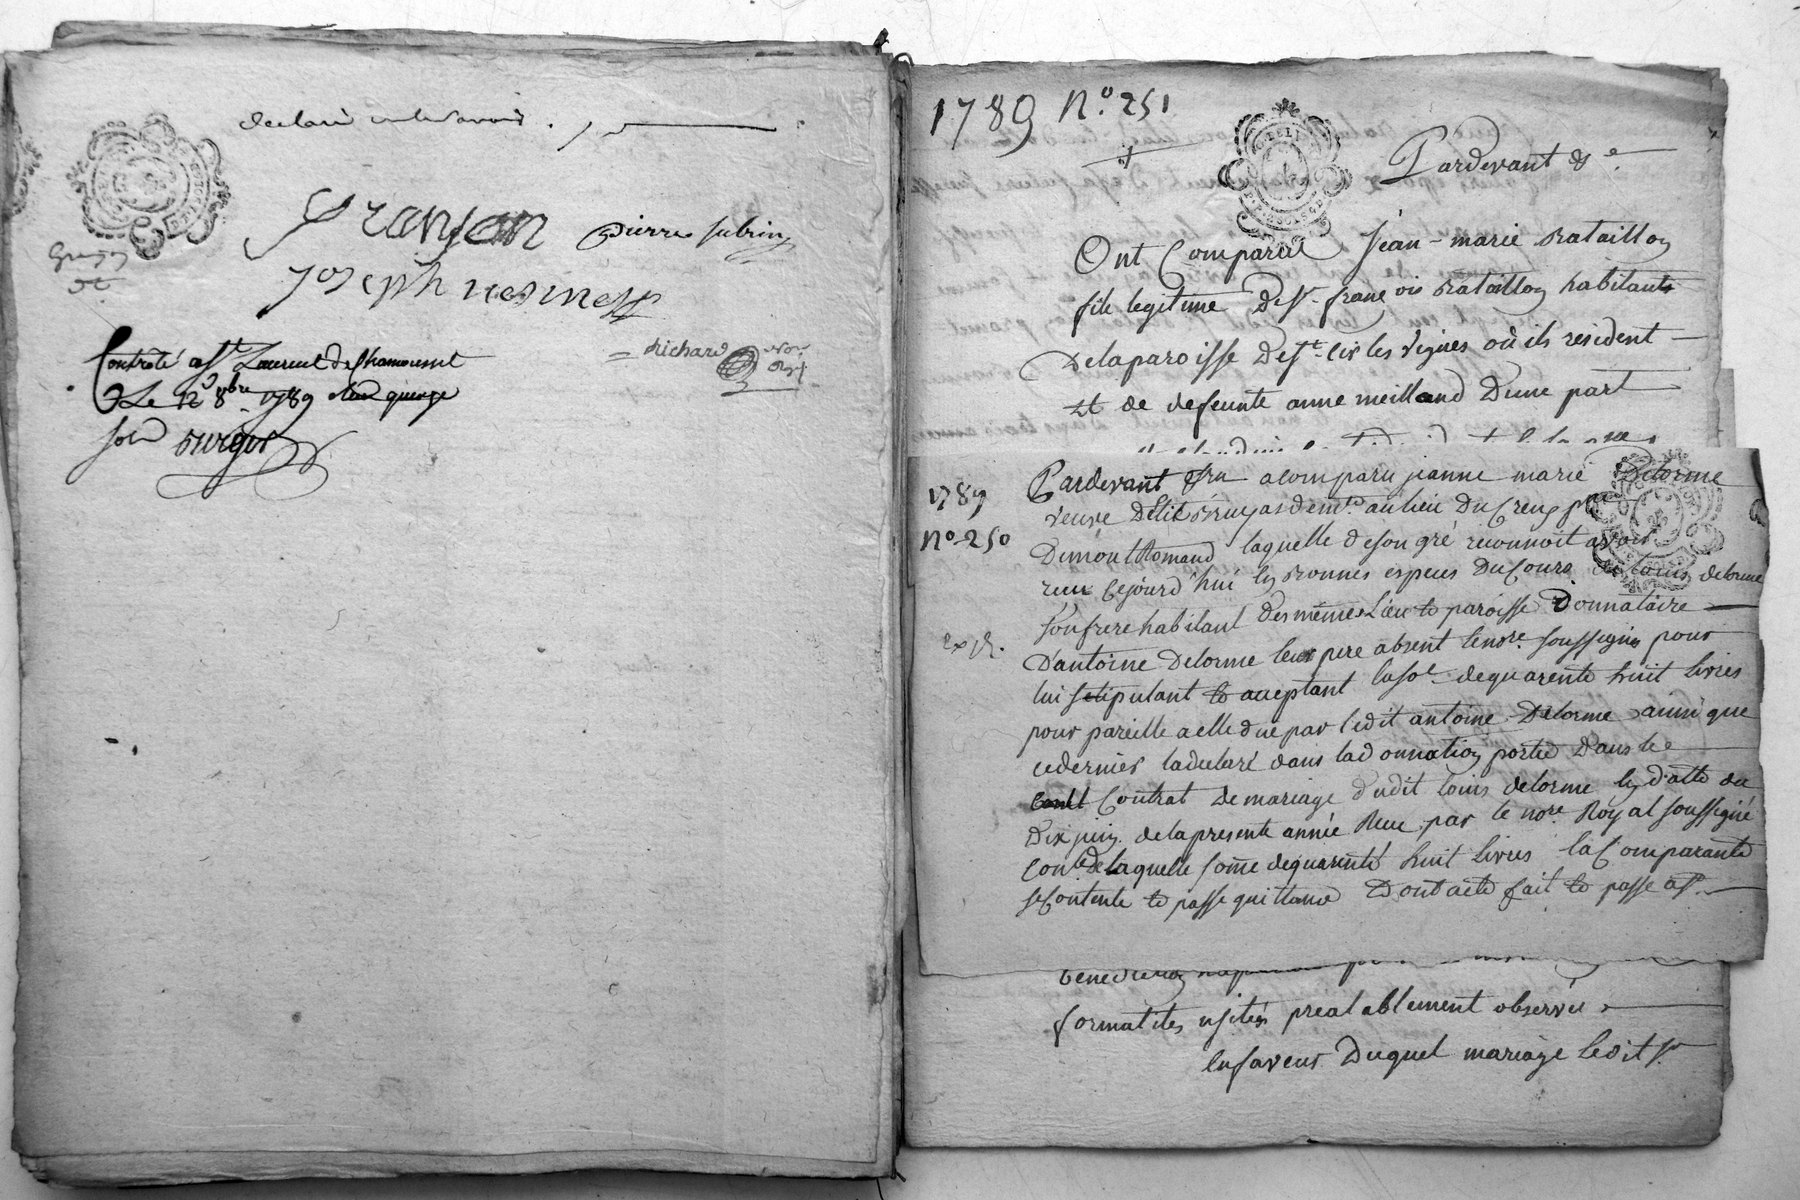 declaré
Granjon
pierre subrin
joseph
richard
Contrôlé a St Laurent de Chamousset
Le 12 8bre 1789 quinze
1789 No. 251
Pardevant &c
Ont Comparu jean-marie Bataillon
fils legitime De Sr. françois Bataillon habitants
De la paroisse De St. Cir les vignes où ils resident
et de deffunte anne meilland D'une part
1789
No. 250
Pardevant a comparu jeanne marie Delorme
veuve au lieu Du Creux psse
De montRomand laquelle de son gré reconnoit avoir
recu cejourd'hui en Bonnes especes Du Cours De Louis delorme
son frere habitant Des mêmes Lieu & paroisse Donnataire
D'antoine Delorme leur pere absent le nore. soussigné pour
lui stipulant & acceptant la so.e de quarente huit livres
pour pareille a elle due par ledit antoine Delorme ainsi que
ce dernier l'a declaré dans la donnation portée Dans le
Contrat De mariage dudit louis delorme en datte du
Dix juin de la presente année Recu par le nore. Royal soussigné
de laquelle some de quarente huit livres la Comparante
se Contente & passe quittance Dont acte fait & passé a St.
formalités usitées prealablement observées
En faveur Duquel mariage ledit Sr